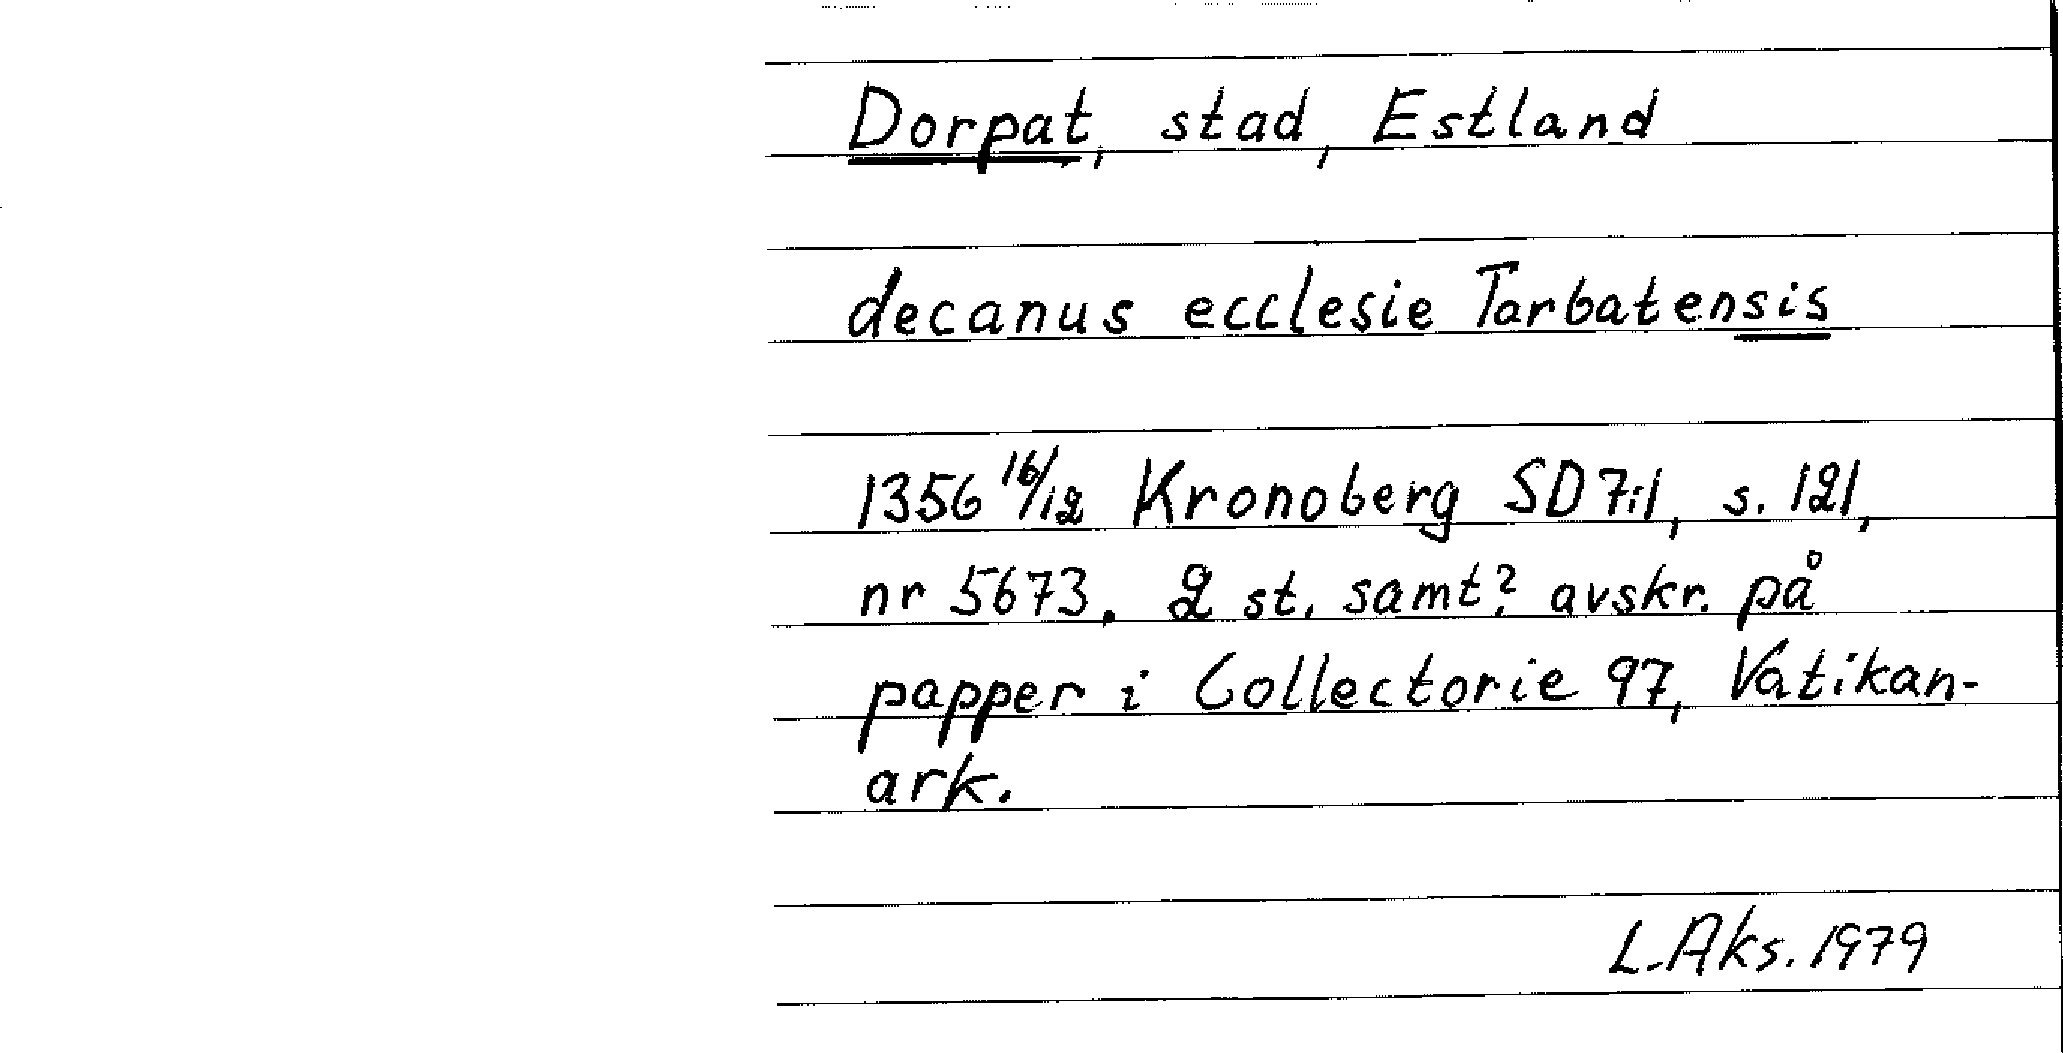 Dorpat, stad, Estland
decanus ecclesie Tarbatensis
1356 16/12 Kronoberg SD 7:1, s. 121,
nr 5673. 2 st. samt? avskr. på
papper i Collectorie 97, Vatikan-
ark.
L. Aks. 1979